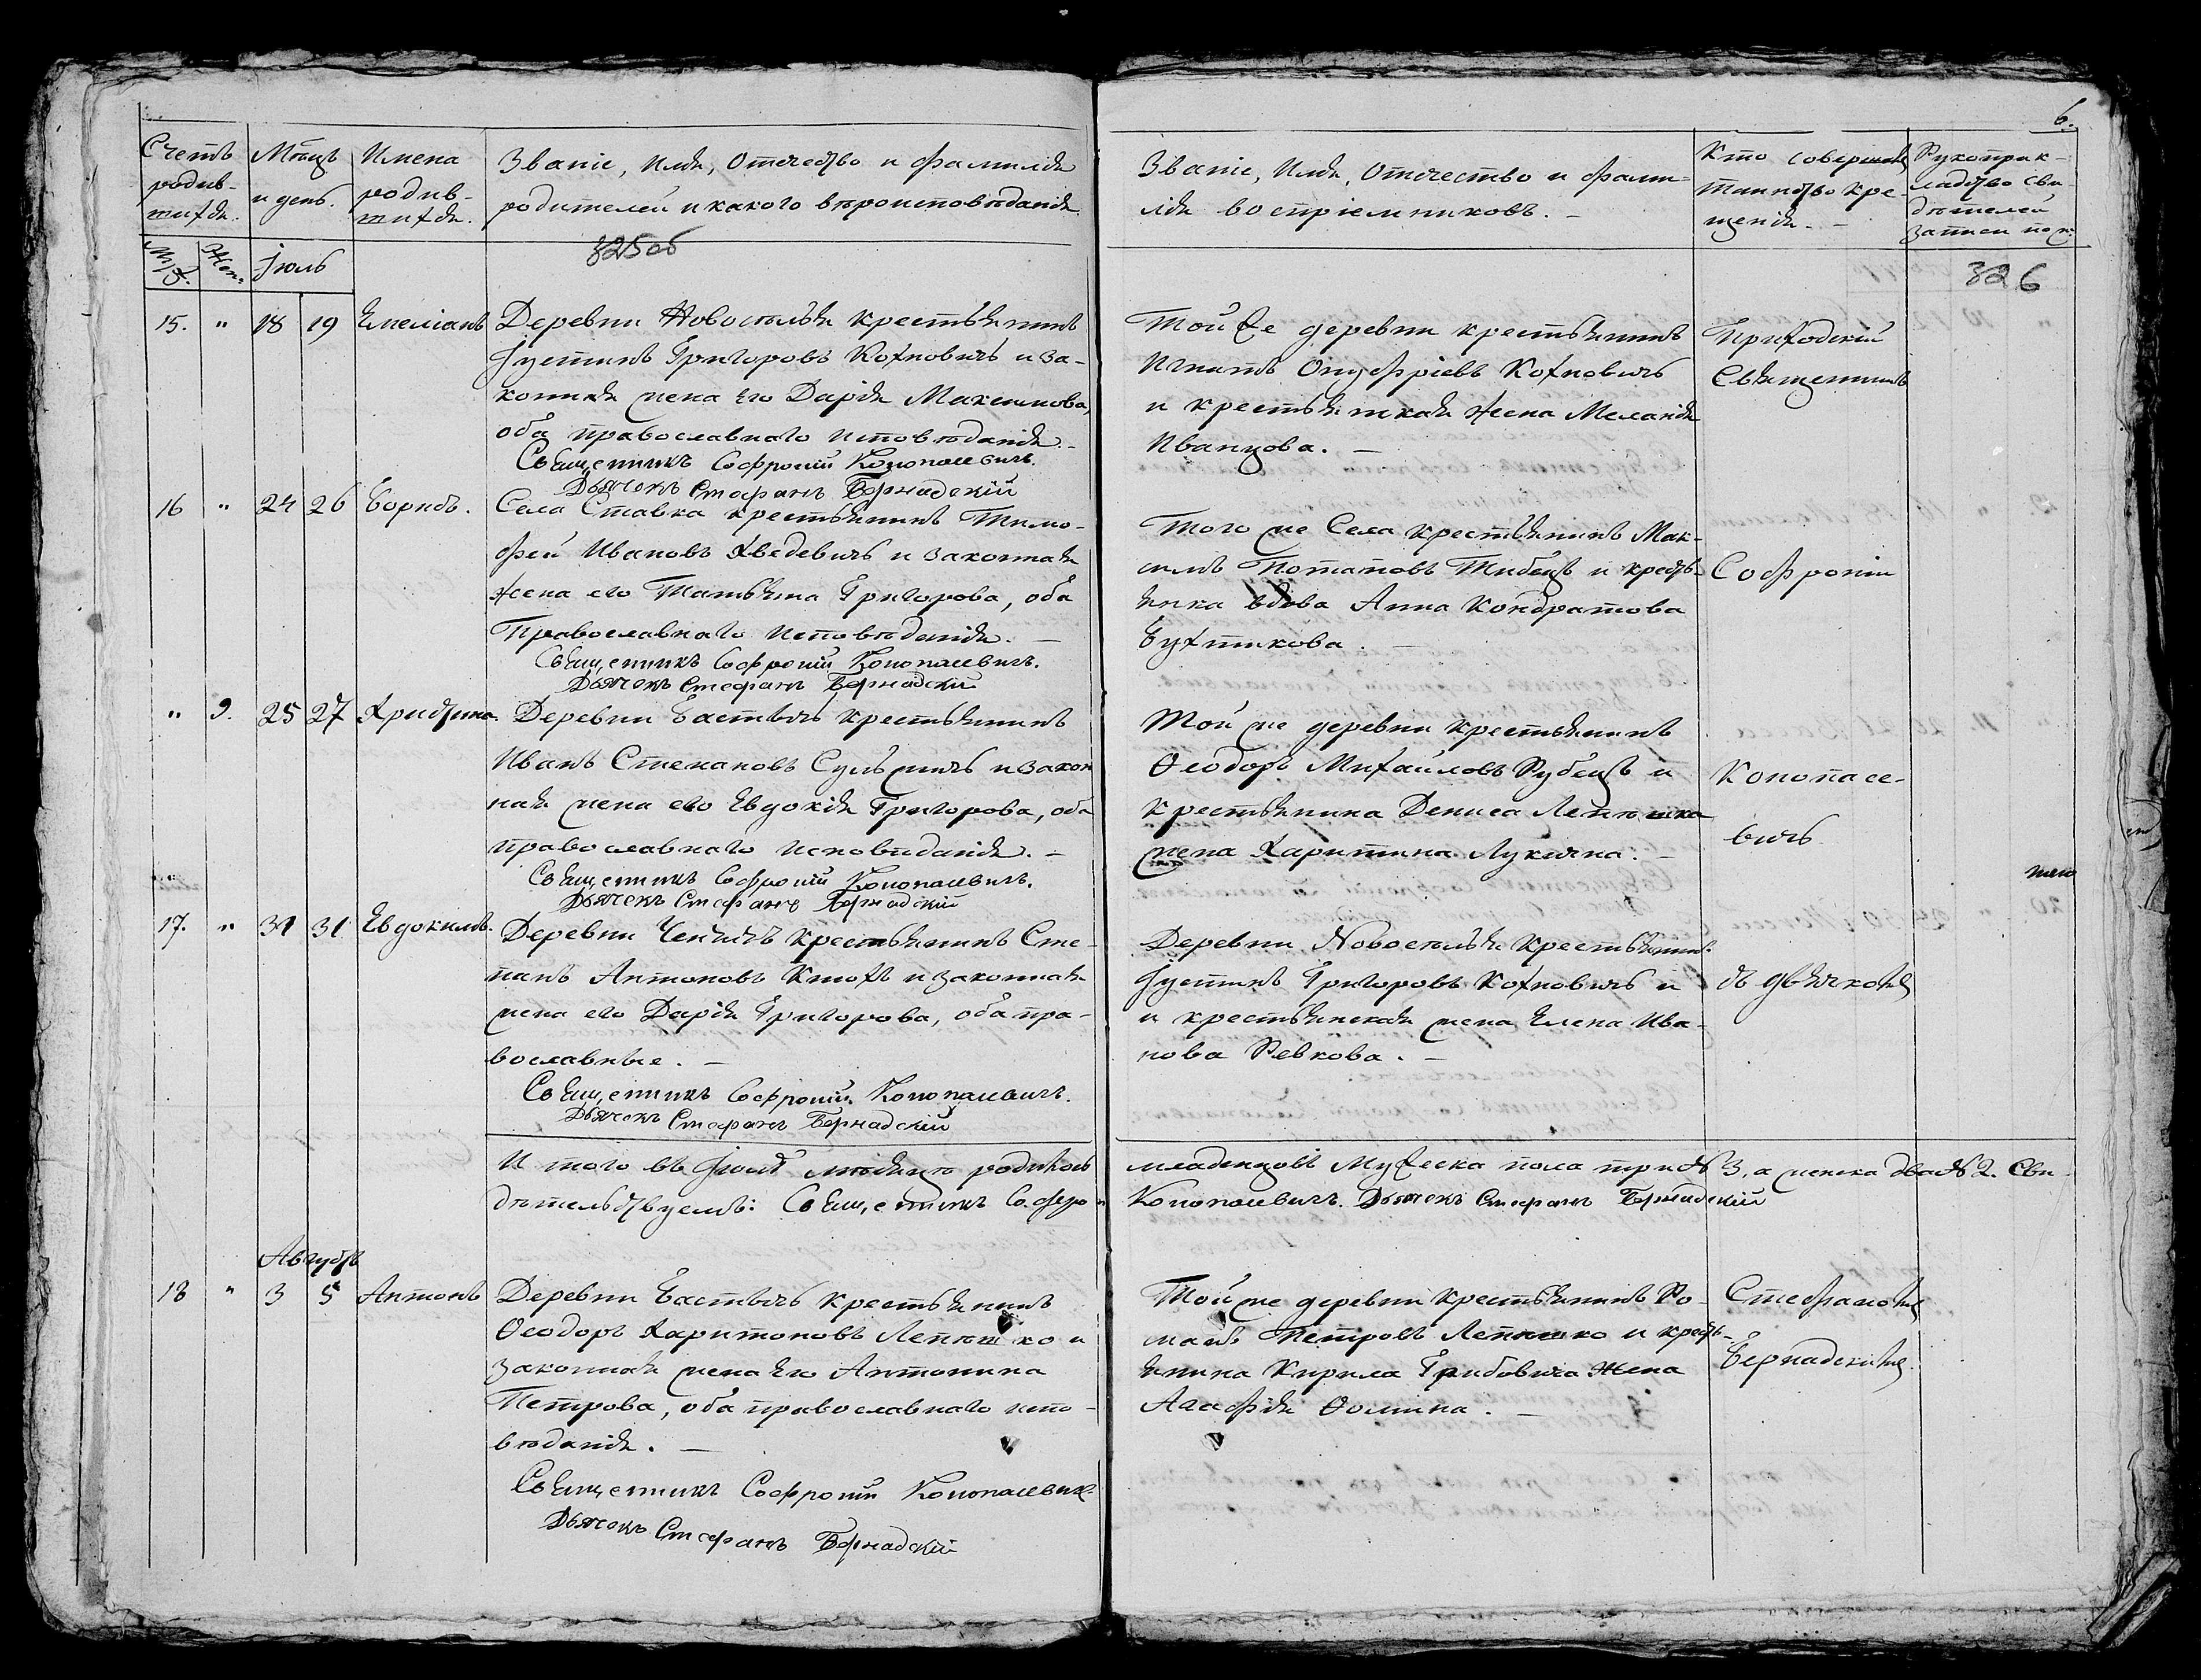 6.
Счетъ родив-шихся.
Мѣсцъ и день.
Имена родив-шихся.
Званіе, Имя, Отчество и фамилія
родителей и какого вѣроисповѣданія.
Званіе, Имя, Отчество и фами-
лія воспріемниковъ. —
Кто совершалъ
таинство кре-
щенія. —
Рукоприк-
ладство сви-
дѣтелей
записи по ж.
Муж. Жен. Іюль
325об
326
15. " 18 19 Емеліанъ
Деревни Новоселья крестьянинъ
Іустинъ Григоровъ Кохновичь и за-
конная жена его Дарія Максимова,
оба православнаго исповѣданія. —
Священникъ Софроній Конопасевичъ.
Дьячекъ Стефанъ Бернадскій
Той же деревни крестьянинъ
Игнатъ Онуфріевъ Кохновичь
и крестьянская жена Меланія
Иванцова. —
Приходскій
Священникъ
16 " 24 26 Борисъ.
Села Ставка крестьянинъ Тимо-
фей Ивановъ Хведевичь и законная
жена его Татьяна Григорова, оба
Православнаго исповѣданія. —
Священникъ Софроній Конопасевичъ.
Дьячекъ Стефанъ Бернадскій
Того же Села крестьянинъ Мак-
симъ Потаповъ Тибецъ и кресть-
янка вдова Анна Кондратова
Бухтикова. —
Софроній
" 9. 25 27 Христина.
Деревни Бастычь крестьянинъ
Иванъ Степановъ Сулжичь и закон
ная жена его Евдокія Григорова, оба
православнаго исповѣданія. —
Священникъ Софроній Конопасевичъ.
Дьячекъ Стефанъ Бернадскій
Той же деревни крестьянинъ
Ѳеодоръ Михайловъ Рубецъ и
крестьянина Дениса Лепѣшка
жена Харитина Лукична. —
Конопасе-
вичь
17. " 31 31 Евдокимъ.
Деревни крестьянинъ Сте-
панъ Антоновъ Кнохъ и законная
жена его Дарія Григорова, оба пра-
вославные. —
Священникъ Софроній Конопасевичъ.
Дьячекъ Стефанъ Бернадскій
Деревни Новоселья крестьянинъ
Іустинъ Григоровъ Кохновичь и
и крестьянская жена Елена Ива-
нова Ревкова. —
съ дьячкомъ
И того въ Іюлѣ мѣсяцѣ родилось младенцовъ мужеска пола три № 3, а женска два № 2. Сви-
дѣтельствуемъ: Священникъ Софроній Конопасевичъ. Дьячекъ Стефанъ Бернадскій
Августъ
18 " 3 5 Антонъ
Деревни Бастычь крестьянинъ
Ѳеодоръ Харитоновъ Лепѣшко и
законная жена его Антонина
Петрова, оба православнаго испо-
вѣданія. —
Священникъ Софроній Конопасевичъ
Дьячекъ Стефанъ Бернадскій
Той же деревни крестьянинъ Ро-
манъ Петровъ Лепѣшко и кресть-
янина Кирила Грибовича жена
Агафія Ѳомина. —
Стефаномъ
Бернадскимъ.